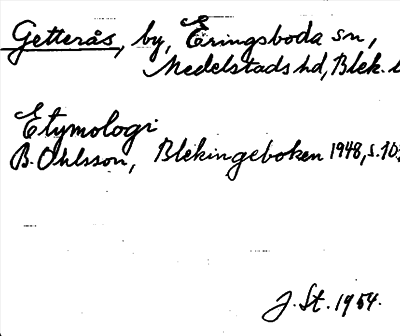 Getterås, by, Eringsboda sn,
Medelstads hd, Blek. l
Etymologi
B. Ohlsson, Blekingeboken 1948, s. 103
J. St. 1954.